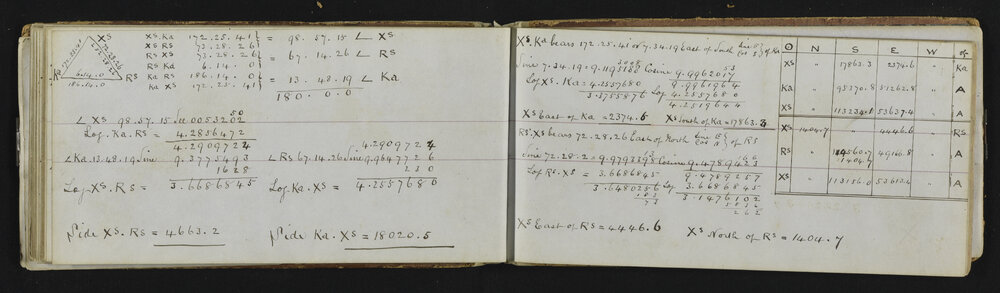 Xs Xs. Ka 172.25.41 } = 98.57.15 ∠ Xs
Xs Rs 73.28.26 }
Rs Xs 73.28.26 } = 67.14.26 ∠ Rs
Rs Ka 6.14.0 }
Ka Rs 186.14.0 } = 13.48.19 ∠ Ka
Ka Xs 172.25.41 }
180.0.0
172.25.41
73.28.26
Ka 6.14.0 Rs
186.14.0
∠ Xs 98.57.15 0053202
50
Log. Ka. Rs = 4.2856472
4.2909724 4.2909724
∠Ka. 13.48.19 Sine 9.3775493 ∠ Rs 67.14.26 Sine 9.9647726
1628 230
Log Xs. Rs = 3.6686845 Log. Ka. Xs = 4.2557680
Side Xs. Rs = 4663.2 Side Ka. Xs = 18020.5
Xs. Ka bears 172.25.41 or 7.34.19 east of South Sine E } of Ka
Cos S }
Sine 7.34.19 = 9.119 Cosine 9.9962017
53
Log Xs. Ka = 4.2557680 9.9961964
3.3755876 Log 4.2557680
4.2519644
Xs East of Ka = 2374.6 Xs South of Ka = 17863.3
Rs. Xs bears 72.28.26 East of North Sine E } of Rs
Cos N }
Sine 72.28.2 = 9.9793395 Cosine 9.4789423
166
Log Rs. Xs = 3.6686845 9.4789257
3.6480256 Log 3.6686845
183 3.1476102
73 5832
262
Xs East of Rs = 4446.6 Xs North of Rs = 1404.7
O N S E W of
Xs " 17863.3 2374.6 " Ka
Ka " 95370.8 51262.8 " A
Xs " 113234.1 53637.4 " A
Xs 1404.7 " 4446.6 " Rs
Rs " 114560.7 49166.8 " A
1404.7
Xs " 113156.0 53613.4 " A